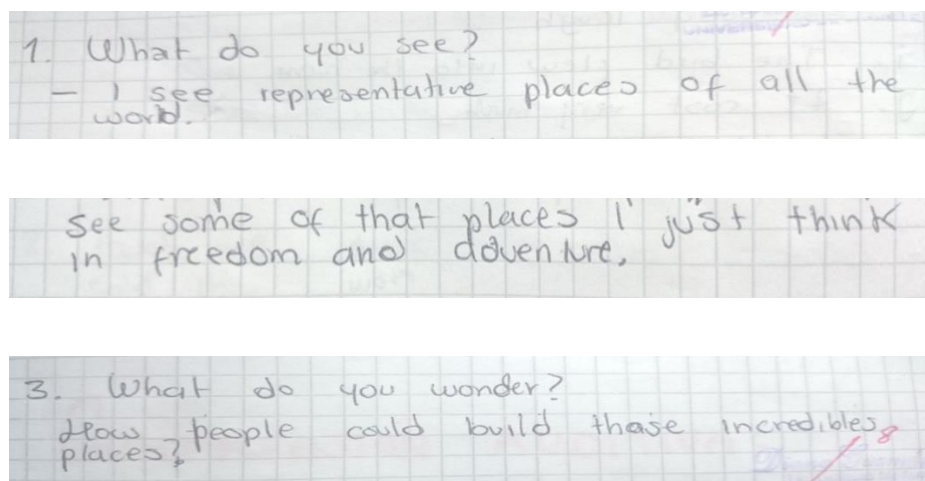 1. What do you see?
- I see representative places of all the
world.
see some of that places I just think
in freedom and adventure.
3. What do you wonder?
How people could build those incredibles
places?